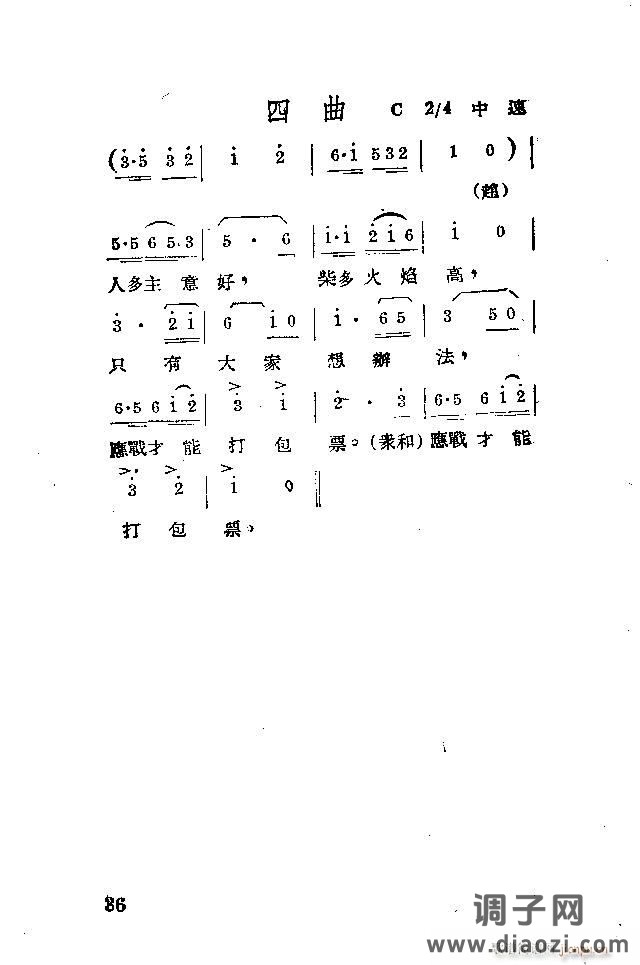 四曲 C 2/4 中速
(3·5 32 | i 2 | 6·i 532 | 1 0) |
(趙)
5·5 65.3 | 5 · 6 | i·i 2i6 | i 0
人多主意好，柴多火焰高，
3 · 2i | 6 i0 | i · 65 | 3 50
只有大家想辦法，
6·5 6i2 | 3 i | 2 · 3 | 6·5 6i2
應戰才能打包票。(衆和)應戰才能
3 2 | i 0
打包票。
86
调子网
www.diaozi.com